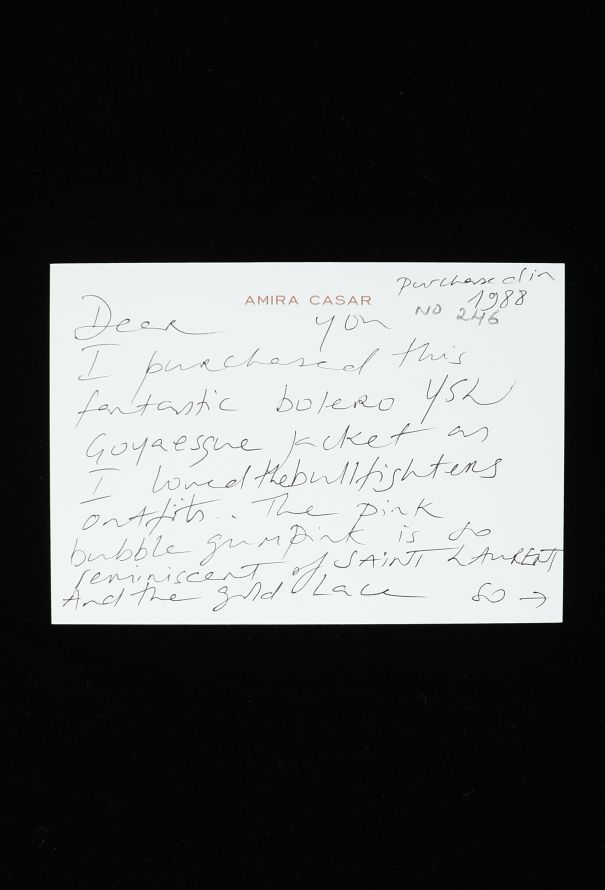 purchased in
AMIRA CASAR
1988
NO 246
Dear you
I purchased this
fantastic bolero YSL
Goyaesque jacket as
I loved the bullfighters
outfits.. The pink
bubble gum pink is so
reminiscent of SAINT LAURENT
And the gold lace so →